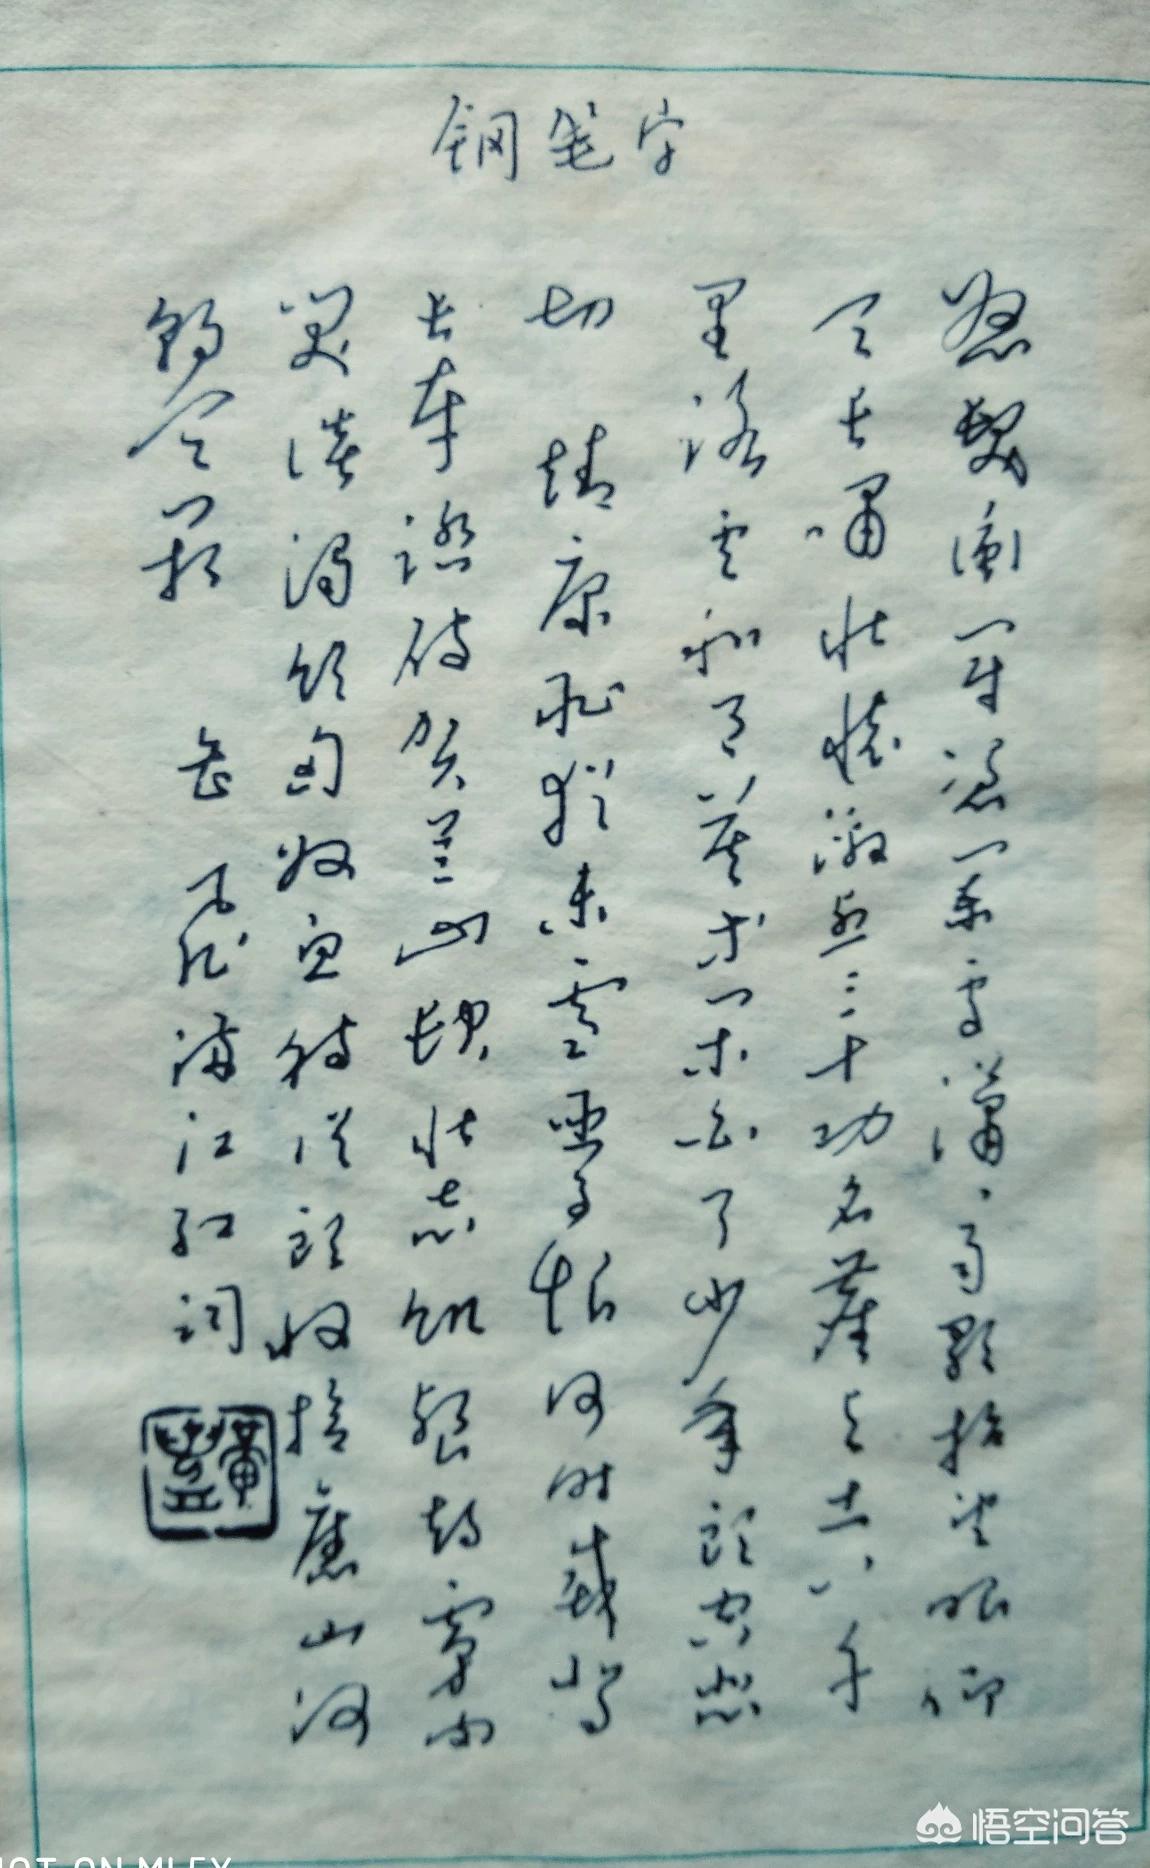 钢笔字
怒髮衝冠凭阑处潇、雨歇抬望眼仰
天长啸壮怀激烈三十功名尘与土八千
里路云和月莫等闲白了少年头空悲
切 靖康耻犹未雪臣子恨何时灭驾
长车踏破贺兰山缺壮志饥餐胡虏肉
笑谈渴饮匈奴血待从头收拾旧山河
朝天阙 岳飞满江红词
悟空问答